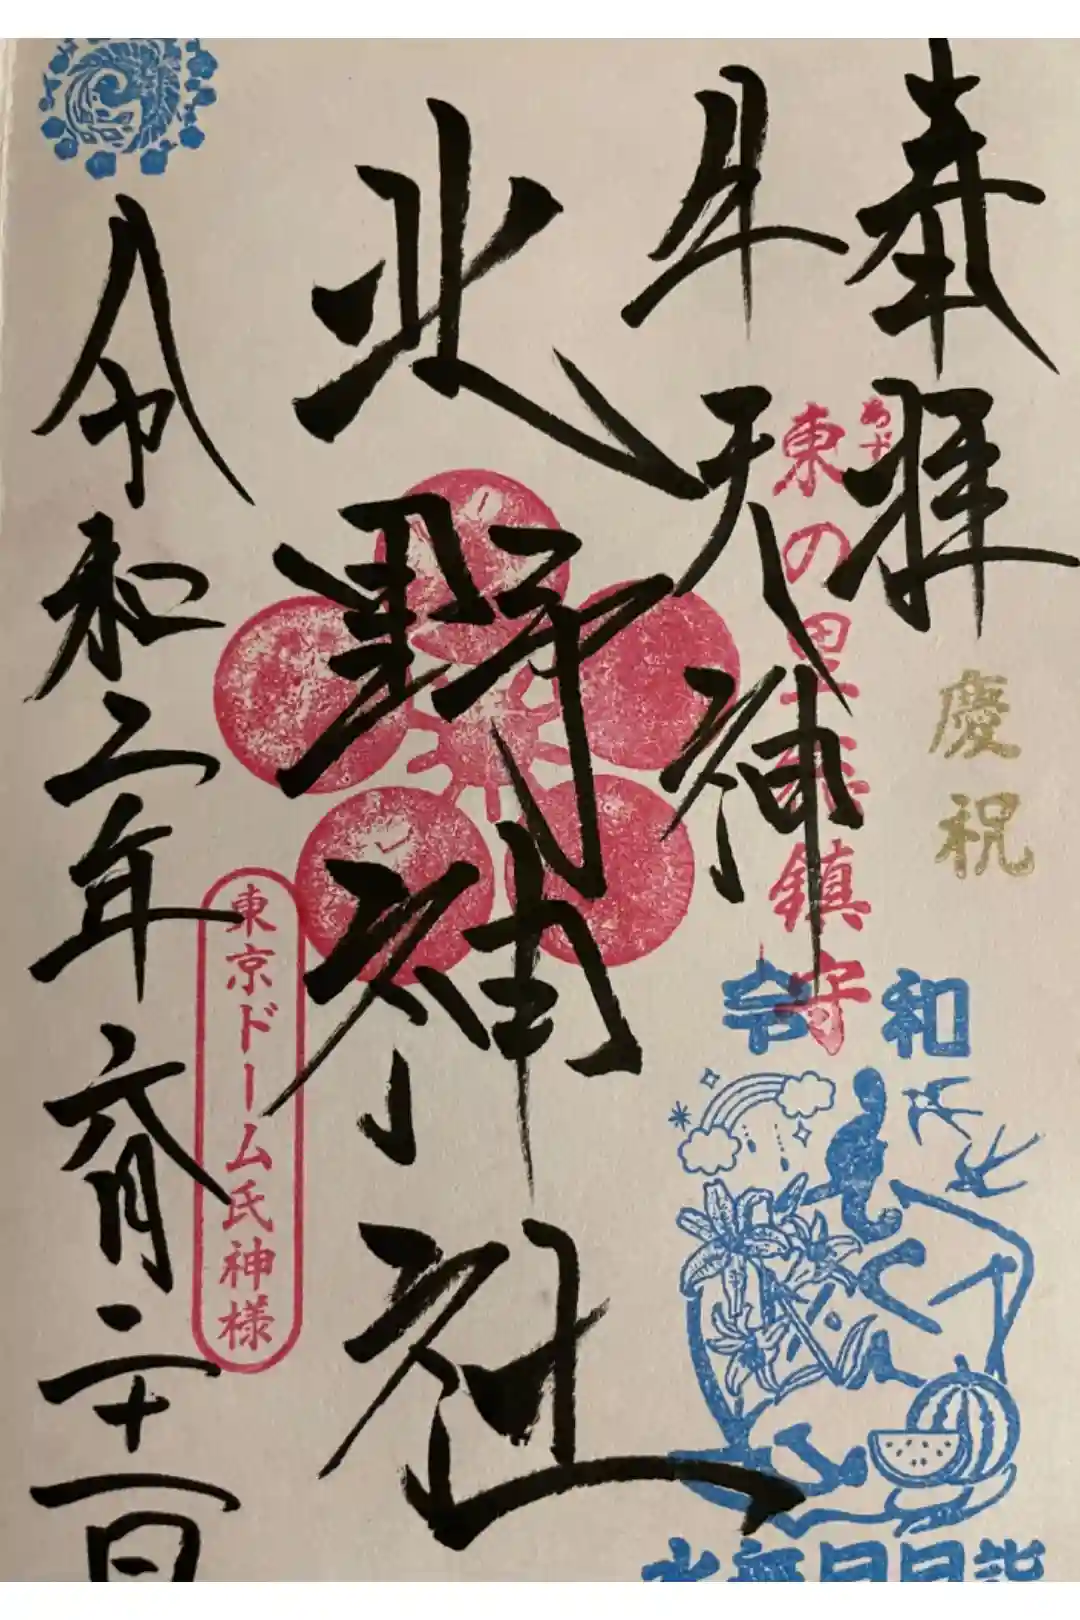 奉拝
慶祝
牛天神
東の
鎮守
北野神社
令和三年六月二十一日
東京ドーム氏神様
令和
水無月月詣